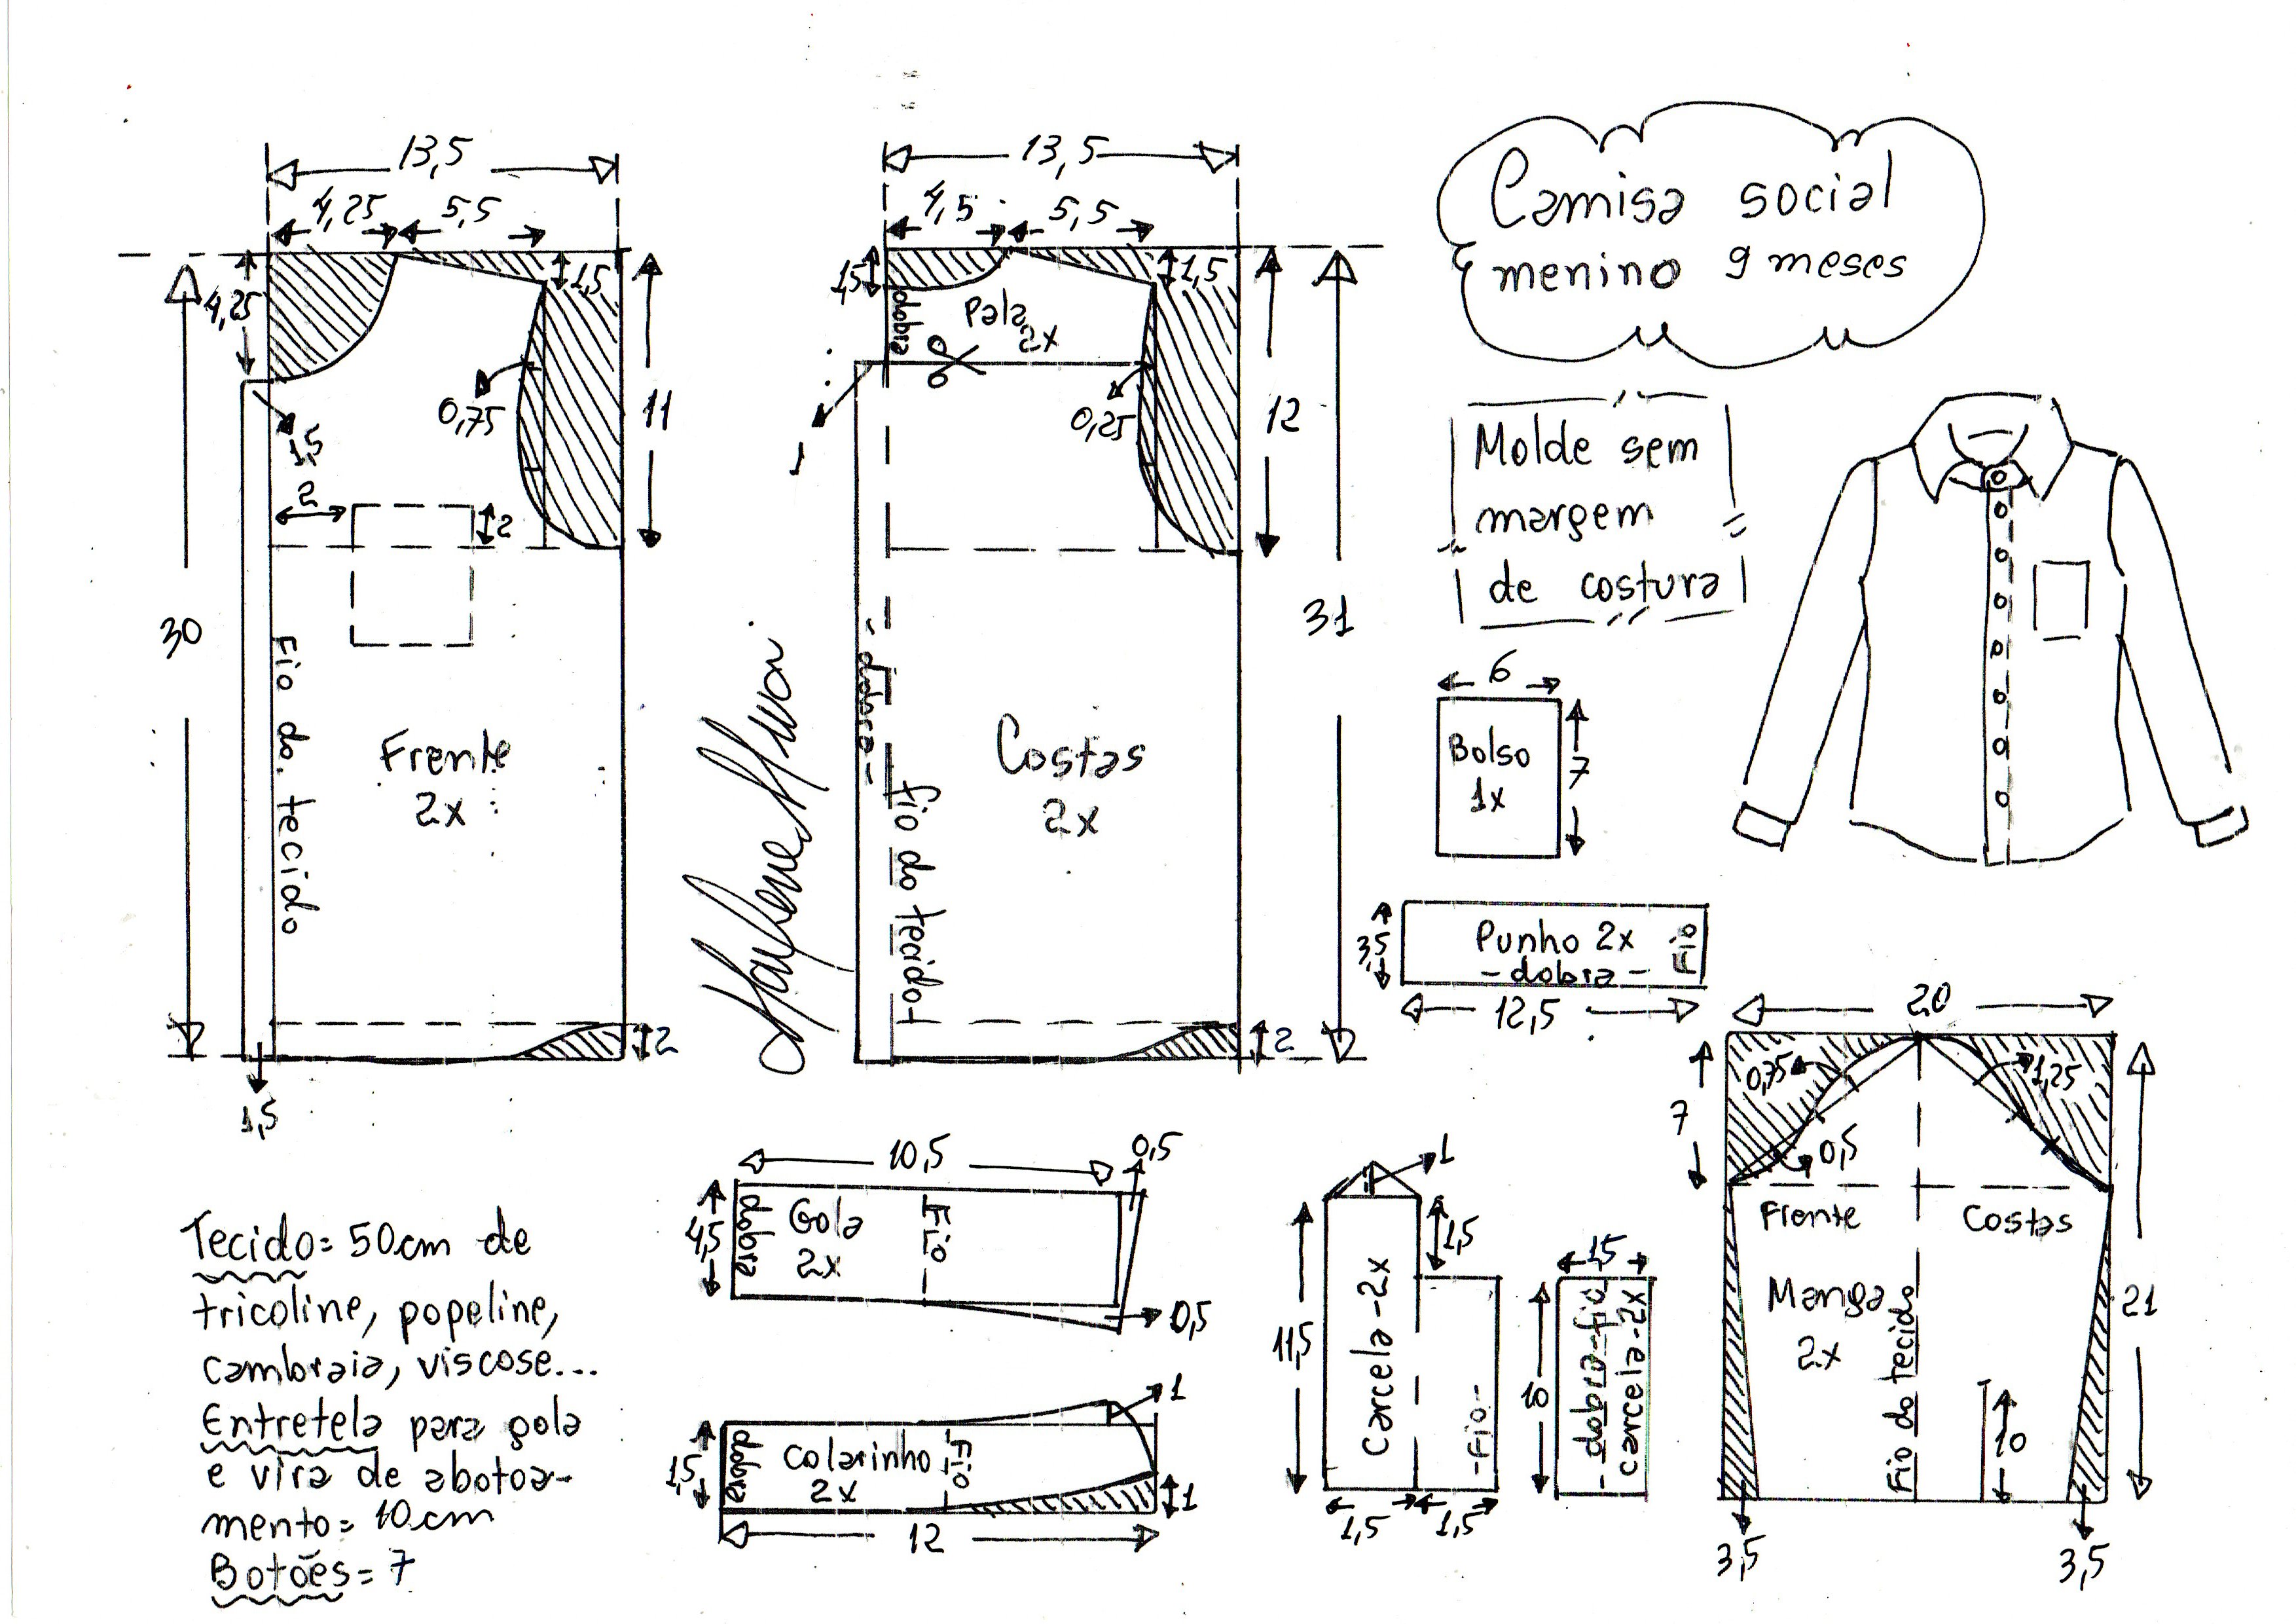 13,5
4,25
5,5
4,25
1,5
11
0,75
1,5
2
2
30
Fio do tecido
Frente
2x
2
1,5
13,5
4,5
5,5
1,5
1,5
dobra
Pala
2x
12
0,25
1
31
- dobra -
fio do tecido
Costas
2x
2
Camisa social
menino 9 meses
Molde sem
margem
de costura
6
Bolso
1x
7
3,5
Punho 2x
- dobra -
Fio
12,5
20
0,75
1,25
7
0,5
Frente
Costas
Manga
2x
Fio do tecido
21
10
3,5
3,5
10,5
0,5
4,5
dobra
Gola
2x
Fio
0,5
1
1,5
dobra
Colarinho
2x
Fio
1
12
1
1,5
11,5
Carcela -2x
-Fio-
1,5
1,5
1,5
10
- dobra - fio
carcela -2x
Tecido= 50cm de
tricoline, popeline,
cambraia, viscose...
Entretela para gola
e vira de abotoa-
mento= 10cm
Botões= 7